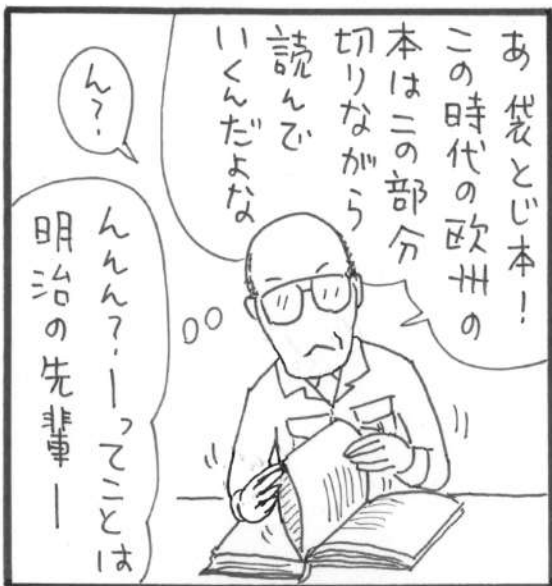 あ 袋とじ本！
この時代の欧州の
本はこの部分
切りながら
読んで
いくんだよな
ん？
んんん？ーってことは
明治の先輩ー